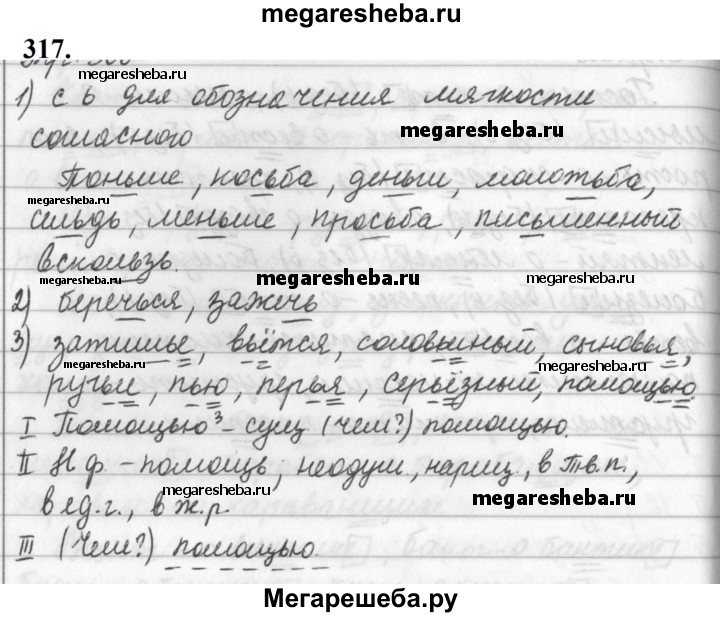 megaresheba.ru
317.
megaresheba.ru
1) с ь для обозначения мягкости
согласного megaresheba.ru
Тоньше, косьба, деньги, молотьба,
megaresheba.ru
сильдь, меньше, просьба, письменный
вскользь.
megaresheba.ru megaresheba.ru megaresheba.ru
2) беречься, зажечь
3) затишье, вьётся, соловьиный, сыновья,
megaresheba.ru megaresheba.ru
ручьи, пью, перья, серьёзный, помощью.
I Помощью³ – сущ (чем?) помощью.
II Н ф. – помощь, неодуш, нариц, в Тв.п.,
megaresheba.ru
в ед.г., в ж.р. megaresheba.ru
III (Чем?) помощью.
megaresheba.ru
Мегарешеба.ру